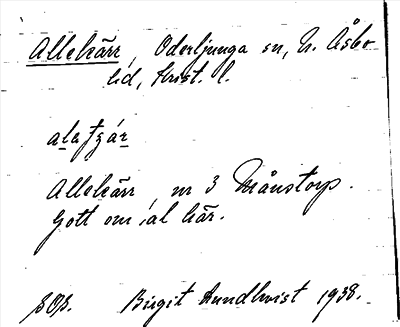 Allekärr, Oderljunga sn, N. Åsbo
hd, Krist. l.
Allekärr, nr 3 Månstorp.
Gott om al här.
Birgit Lundkvist 1938.